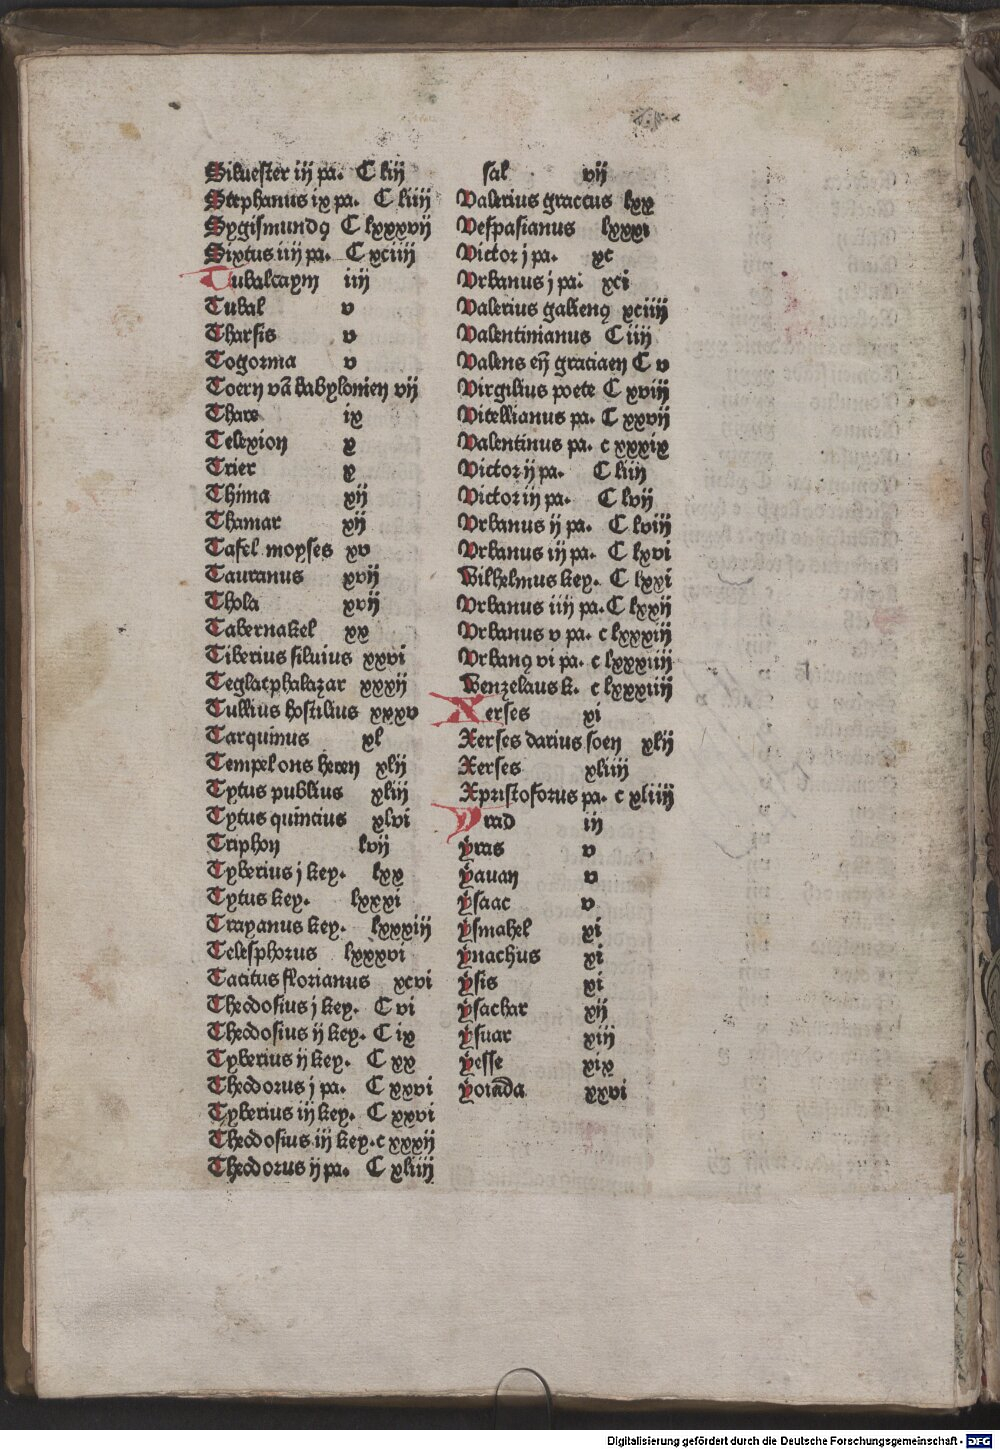 Siluester iij pa. C liij
Stephanus ix pa. C liiij
Sygismundꝯ C lxxxvij
Sixtus iiij pa. C xciiij
Tubalcaym iiij
Tubal v
Tharsis v
Togorma v
Toern vā babylonien vij
Thare ix
Telexion x
Trier x
Thima xij
Thamar xij
Tafel moyses xv
Tauranus xvij
Thola xvij
Tabernakel xx
Tiberius siluius xxvi
Teglatphalazar xxxij
Tullius hostilius xxxv
Tarquinus xl
Tempel ons heren xlij
Tytus publius xliij
Tytus quintius xlvi
Triphon lvij
Tyberius j key. lxx
Tytus key. lxxxi
Trayanus key. lxxxiij
Telesphorus lxxxvi
Tacitus florianus xcvi
Theodosius j key. C vi
Theodosius ij key. C ix
Tyberius ij key. C xx
Theodorus j pa. C xxvi
Tyberius iij key. C xxvi
Theodosius iij key. c xxxij
Theodorus ij pa. C xliiij
sal vij
Valerius graccus lxx
Vespasianus lxxxi
Victor j pa. xc
Vrbanus j pa. xci
Valerius galienꝯ xciiij
Valentinianus C iij
Valens eñ graciaen C v
Virgilius poete C xviij
Vitellianus pa. C xxvij
Valentinus pa. c xxxix
Victor ij pa. C liij
Victor iij pa. C lvij
Vrbanus ij pa. C lviij
Vrbanus iij pa. C lxvi
Wilhelmus key. C lxxi
Vrbanus iiij pa. C lxxij
Vrbanus v pa. c lxxxiij
Vrbanꝯ vi pa. c lxxxiiij
Wenzelaus k. c lxxxiiij
Xerses xi
Xerses darius soen xlij
Xerses xliiij
Xpristoforus pa. c xliiij
Yrad iij
ẏras v
ẏauan v
ẏsaac v
ẏsmahel xi
ẏnachus xi
ẏsis xi
ẏsachar xij
ẏsuar xiij
ẏesse xix
ẏoiāda xxvi
Digitalisierung gefördert durch die Deutsche Forschungsgemeinschaft - DFG